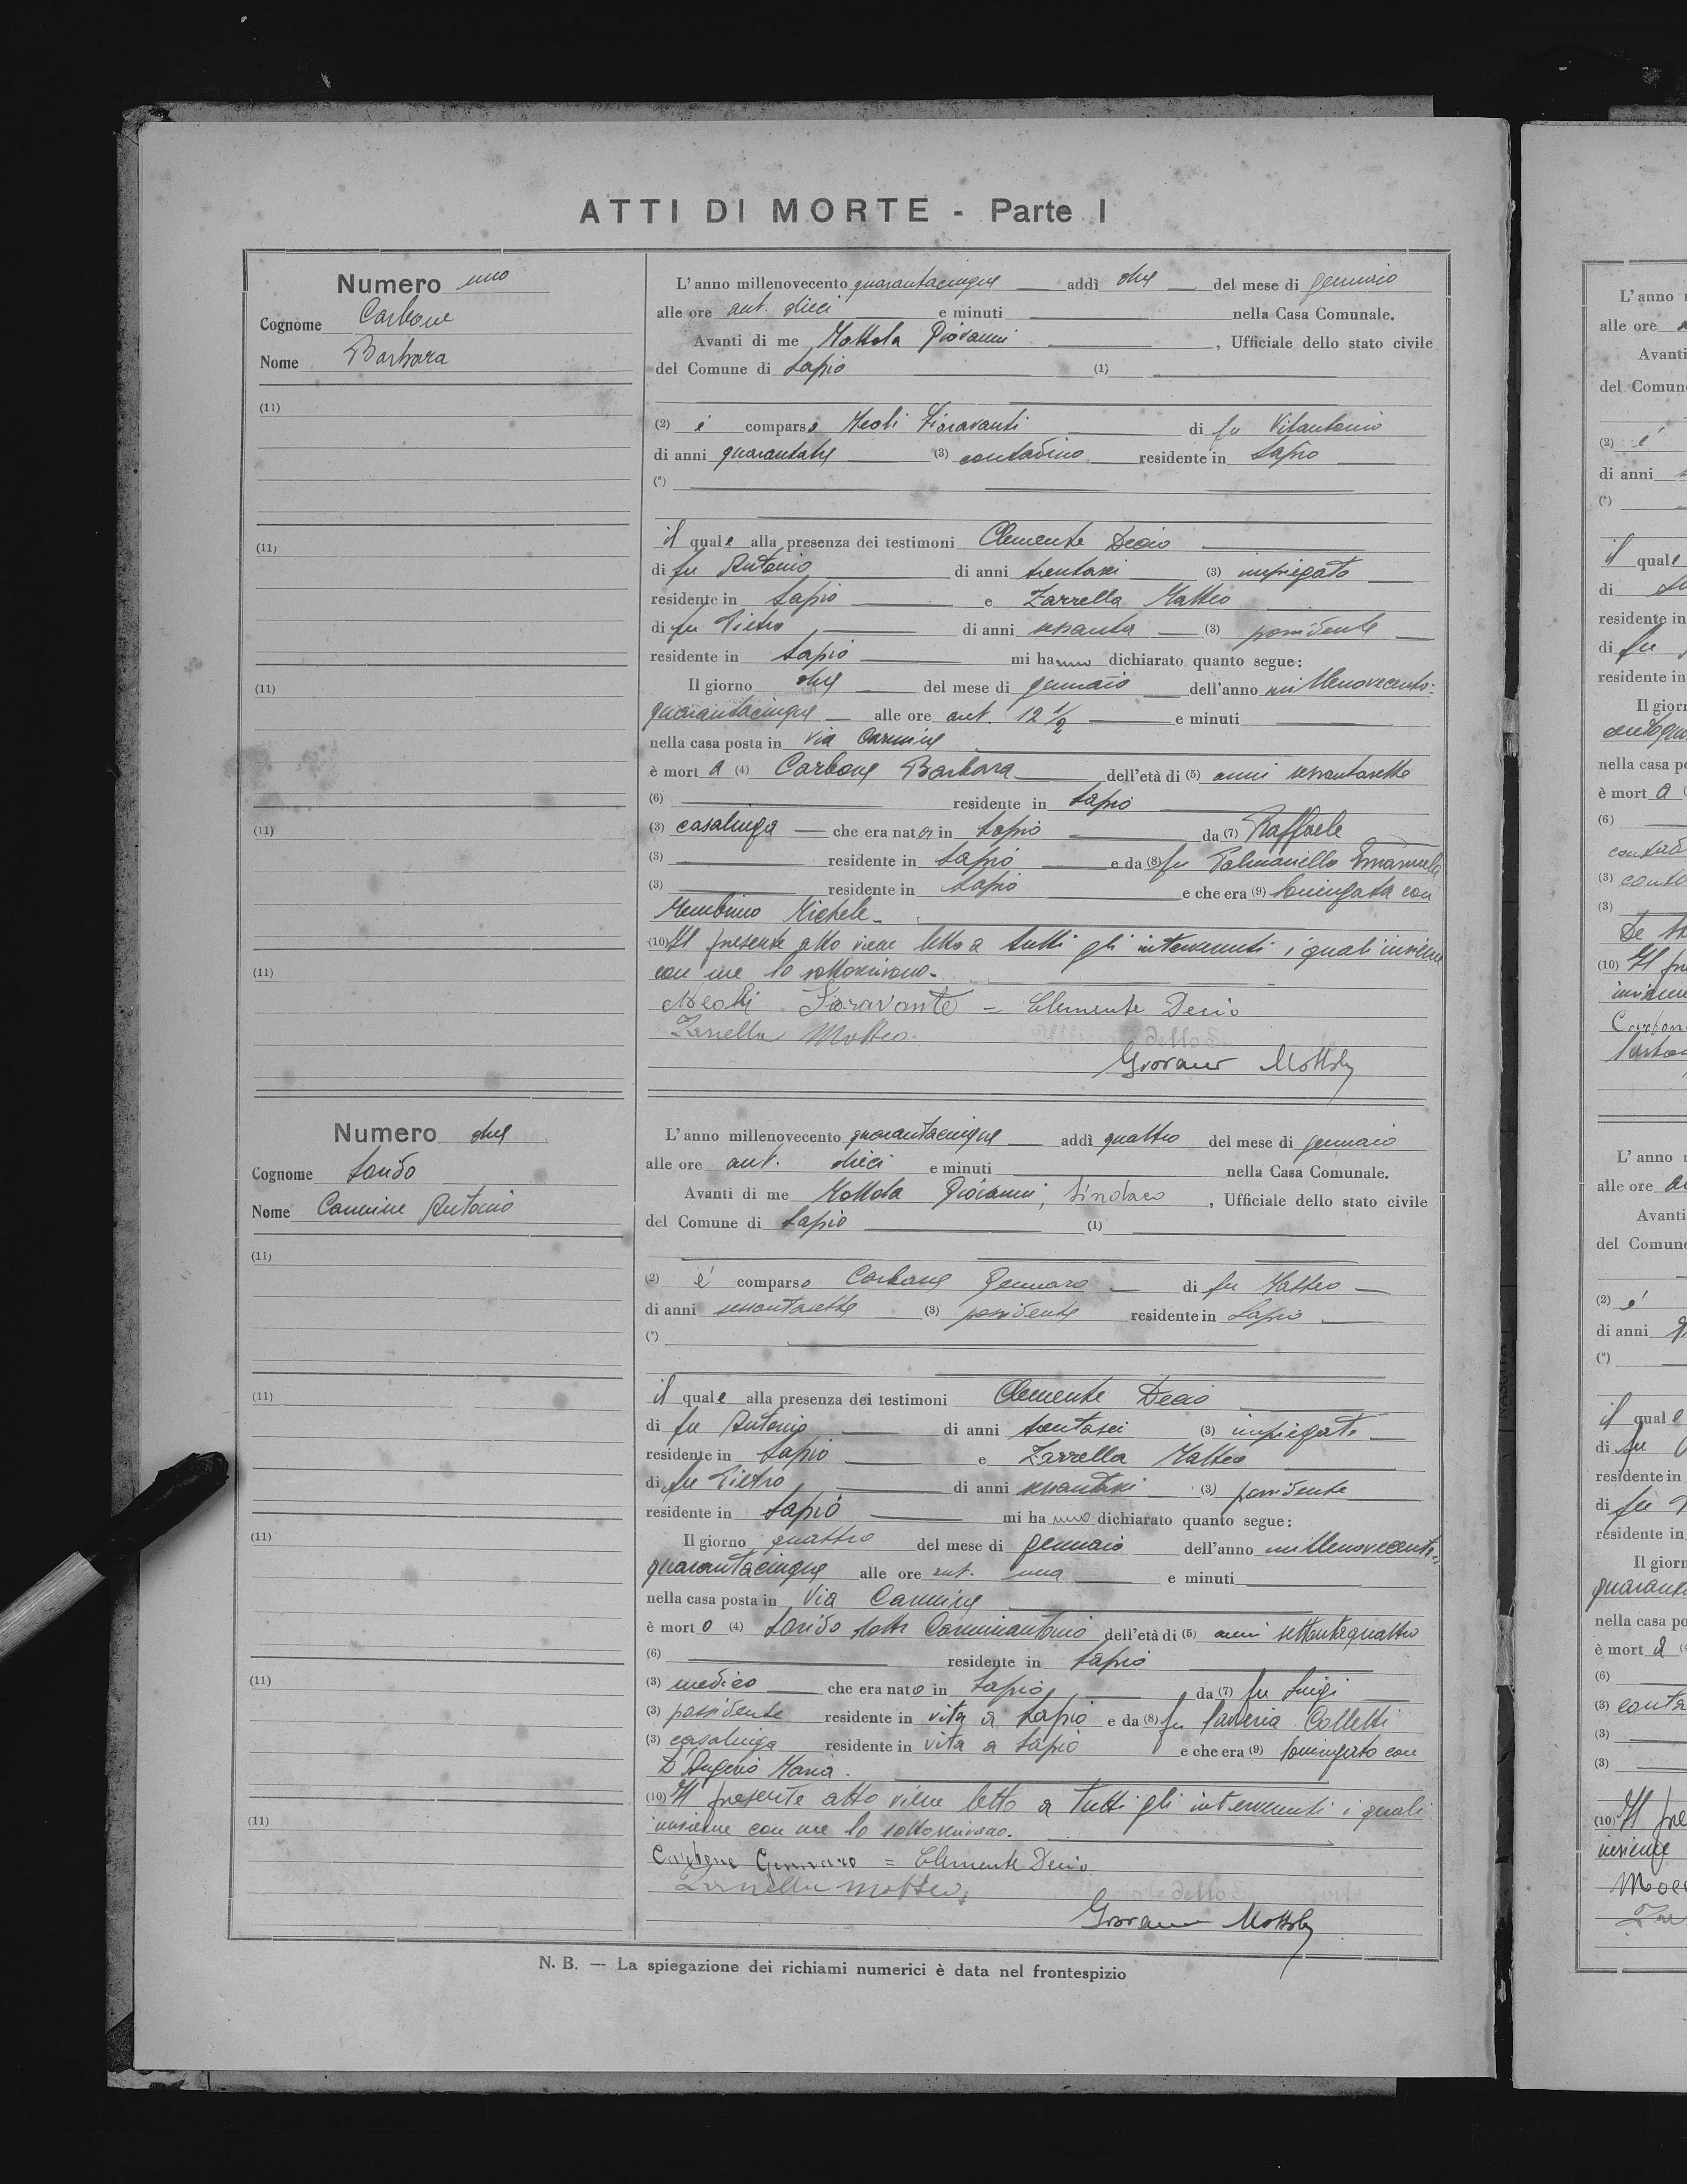 ATTI DI MORTE - Parte I
Numero uno
Cognome Carbone
Nome Barbara
(11)
(11)
(11)
(11)
(11)
L'anno millenovecento quarantacinque addì due del mese di gennaio
alle ore ant. dieci e minuti nella Casa Comunale.
Avanti di me Mottola Giovanni, Ufficiale dello stato civile
del Comune di Lapio (1)
(2) è comparso Meoli Fioravanti di fu Vitantonio
di anni quarantatre (3) contadino residente in Lapio
(*)
il quale alla presenza dei testimoni Clemente Decio
di fu Antonio di anni trentasei (3) impiegato
residente in Lapio e Zarrella Matteo
di fu Pietro di anni sessanta (3) possidente
residente in Lapio mi hanno dichiarato quanto segue:
Il giorno due del mese di gennaio dell'anno millenovecento-
quarantacinque alle ore ant. 12 ½ e minuti
nella casa posta in Via Carmine
è morta (4) Carbone Barbara dell'età di (5) anni sessantasette
(6) residente in Lapio
(3) casalinga che era nata in Lapio da (7) Raffaele
(3) residente in Lapio e da (8) fu Palmariello Emanuela
(3) residente in Lapio e che era (9) coniugata con
Membrino Michele.
(10) Il presente atto viene letto a tutti gli intervenuti i quali insieme
con me lo sottoscrivono.
Meoli Fioravante = Clemente Decio
Zarrella Matteo.
Giovanni Mottola
Numero due
Cognome
Nome Carmine Antonio
(11)
(11)
(11)
(11)
(11)
L'anno millenovecento quarantacinque addì quattro del mese di gennaio
alle ore ant. dieci e minuti nella Casa Comunale.
Avanti di me Mottola Giovanni, Sindaco, Ufficiale dello stato civile
del Comune di Lapio (1)
(2) è comparso Carbone Gennaro di fu Matteo
di anni sessantasette (3) possidente residente in Lapio
(*)
il quale alla presenza dei testimoni Clemente Decio
di fu Antonio di anni trentasei (3) impiegato
residente in Lapio e Zarrella Matteo
di fu Pietro di anni sessantasei (3) possidente
residente in Lapio mi hanno dichiarato quanto segue:
Il giorno quattro del mese di gennaio dell'anno millenovecento=
quarantacinque alle ore ant. una e minuti
nella casa posta in Via Carmine
è morto (4) dott. Carminantonio dell'età di (5) anni settantaquattro
(6) residente in Lapio
(3) medico che era nato in Lapio da (7) fu Luigi
(3) possidente residente in vita a Lapio e da (8) fu Saveria Colletti
(3) casalinga residente in vita a Lapio e che era (9) coniugato con
D'Angerio Maria.
(10) Il presente atto viene letto a tutti gli intervenuti i quali
insieme con me lo sottoscrivono.
Carbone Gennaro = Clemente Decio
Zarrella Matteo.
Giovanni Mottola
N. B. — La spiegazione dei richiami numerici è data nel frontespizio